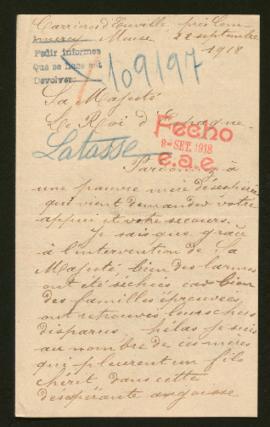 Carrières d'Euville près Com-
mercy Meuse 22 septembre
1918
Pedir informes
Que se hace est
Devolver
109197
Sa Majesté
Le Roi d'Espagne
Fecho
SET. 1918
e.a.e
Latasse
Pardonnez à
une pauvre mère désespérée
qui vient demander votre
appui et votre secours.
Je sais que grâce
à l'intervention de Sa
Majesté, bien des larmes
ont été séchées car bien
des familles éprouvées
ont retrouvés leurs chers
disparus hélas je suis
au nombre de ces mères
qui pleurent un fils
chérit dans cette
désespérante angoisse